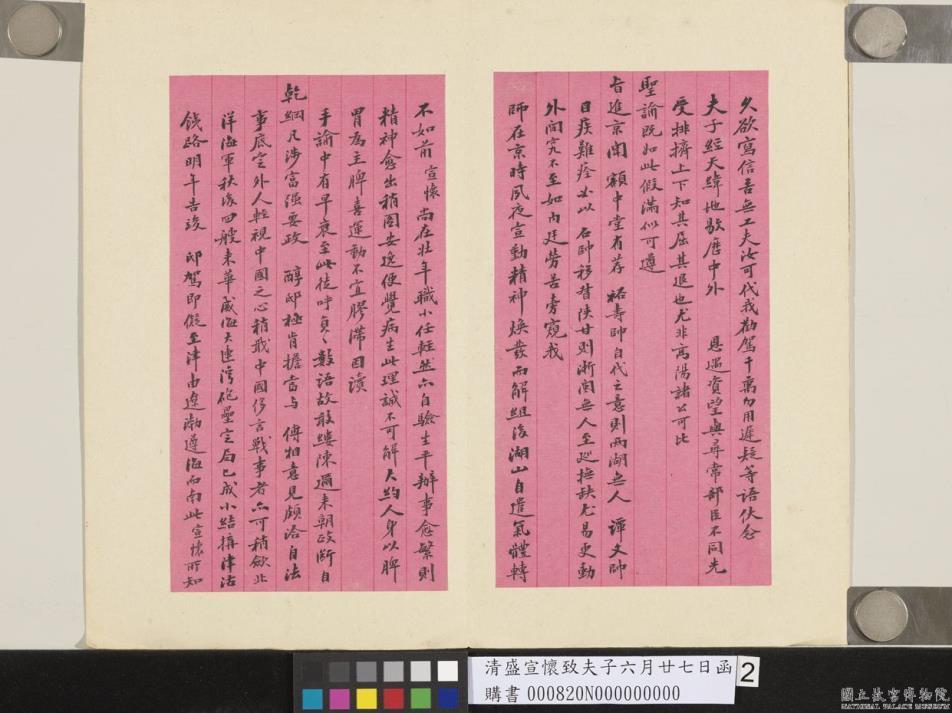 久欲寫信吾無工夫汝可代我勸駕千萬勿用遲疑等語伏念
夫子經天緯地敭歷中外 恩遇資望與尋常部臣不同先
受排擠上下知其屈其退也尤非高陽諸公可比
聖諭既如此假滿似可遵
旨進京聞額中堂有荐 裕壽帥自代之意則兩湖無人 譚文帥
目疾難痊必以石帥移督陝甘則浙閩無人至巡撫缺尤易更動
外間究不至如內廷勞苦旁窺我
師在京時夙夜宣勤精神煥發而解組後湖山自遣氣體轉
不如前 宣懷 尚在壯年職小任輕然亦自驗生平辦事愈繁則
精神愈出稍圖安逸便覺病生此理誠不可解大約人身以脾
胃為主脾喜運動不宜膠滯因讀
手諭中有早衰至此徒呼負負數語故敢縷陳邇來朝政斷自
乾綱凡涉富强要政 醇邸極肯擔當與 傅相意見頗洽自法
事底定外人輕視中國之心稍戢中國侈言戰事者亦可稍斂北
洋海軍秋後四艘來華威海大連灣砲壘定局已成小結構津沽
鐵路明年告竣 邸駕即儗至津由遼渤遵海而南此宣懷所知
清盛宣懷致夫子六月廿七日函
購書 000820N000000000
2
國立故宮博物院
NATIONAL PALACE MUSEUM